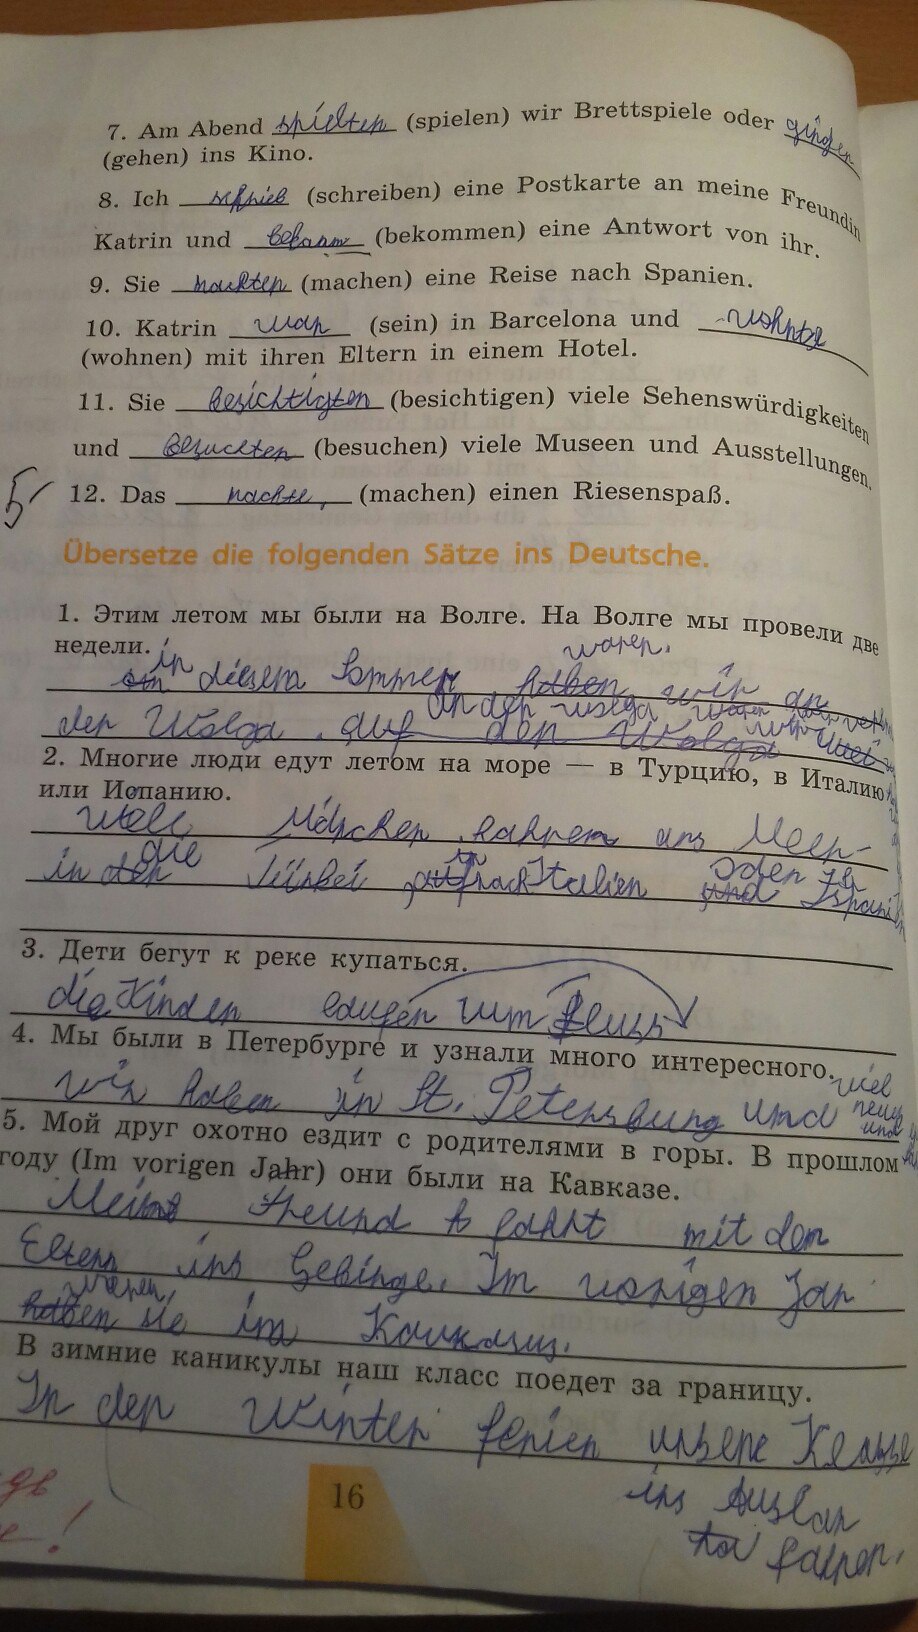 7. Am Abend spielten (spielen) wir Brettspiele oder gingen
(gehen) ins Kino.
8. Ich schrieb (schreiben) eine Postkarte an meine Freundin
Katrin und bekamm (bekommen) eine Antwort von ihr.
9. Sie machten (machen) eine Reise nach Spanien.
10. Katrin war (sein) in Barcelona und wohnte
(wohnen) mit ihren Eltern in einem Hotel.
11. Sie besichtigten (besichtigen) viele Sehenswürdigkeiten
und besuchten (besuchen) viele Museen und Ausstellungen.
5
12. Das machte (machen) einen Riesenspaß.
Übersetze die folgenden Sätze ins Deutsche.
1. Этим летом мы были на Волге. На Волге мы провели две
недели.
waren
in diesem Sommer haben wir an
an der Wolga waren
der Wolga. auf den Wolga wir
2. Многие люди едут летом на море — в Турцию, в Италию
или Испанию.
ans Meer
die in oder
in der Italien und
3. Дети бегут к реке купаться.
die Kinder zum Fluss
4. Мы были в Петербурге и узнали много интересного.
viel
wir haben in St. Petersburg und
und
5. Мой друг охотно ездит с родителями в горы. В прошлом
году (Im vorigen Jahr) они были на Кавказе.
Freund fahrt mit den
Eltern ins Gebirge. Im vorigen Jar
waren
haben sie im Kaukasus.
В зимние каникулы наш класс поедет за границу.
In den Winter ferien unsere Klasse
ins Auslan
16